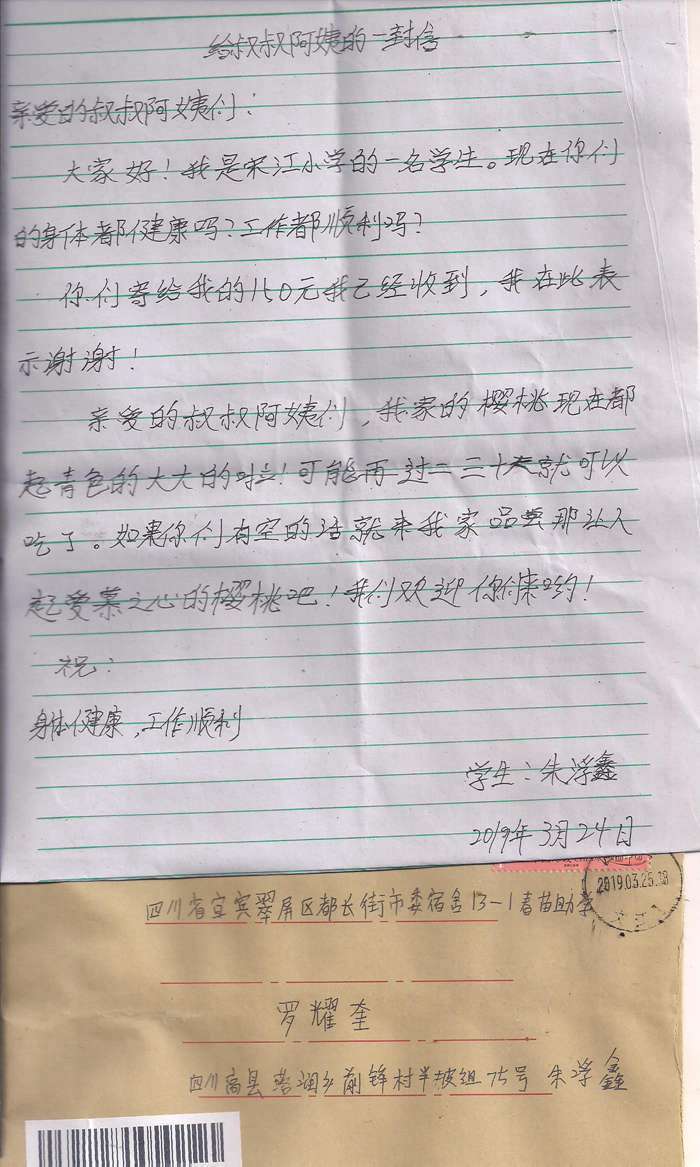 给叔叔阿姨的一封信
亲爱的叔叔阿姨们：
大家好！我是宋江小学的一名学生。现在你们
的身体都健康吗？工作都顺利吗？
你们寄给我的150元我已经收到，我在此表
示谢谢！
亲爱的叔叔阿姨们，我家的樱桃现在都
起青色的大大的啦！可能再过二三十天就可以
吃了。如果你们有空的话就来我家品尝那让人
起爱慕之心的樱桃吧！我们欢迎你们来哟！
祝：
身体健康，工作顺利
学生：朱浮鑫
2019年3月24日
2019.03.25.18
四川省宜宾翠屏区都长街市委宿舍13-1春苗助学
罗耀奎
四川高县 落润乡前锋村半坡组75号 朱浮鑫